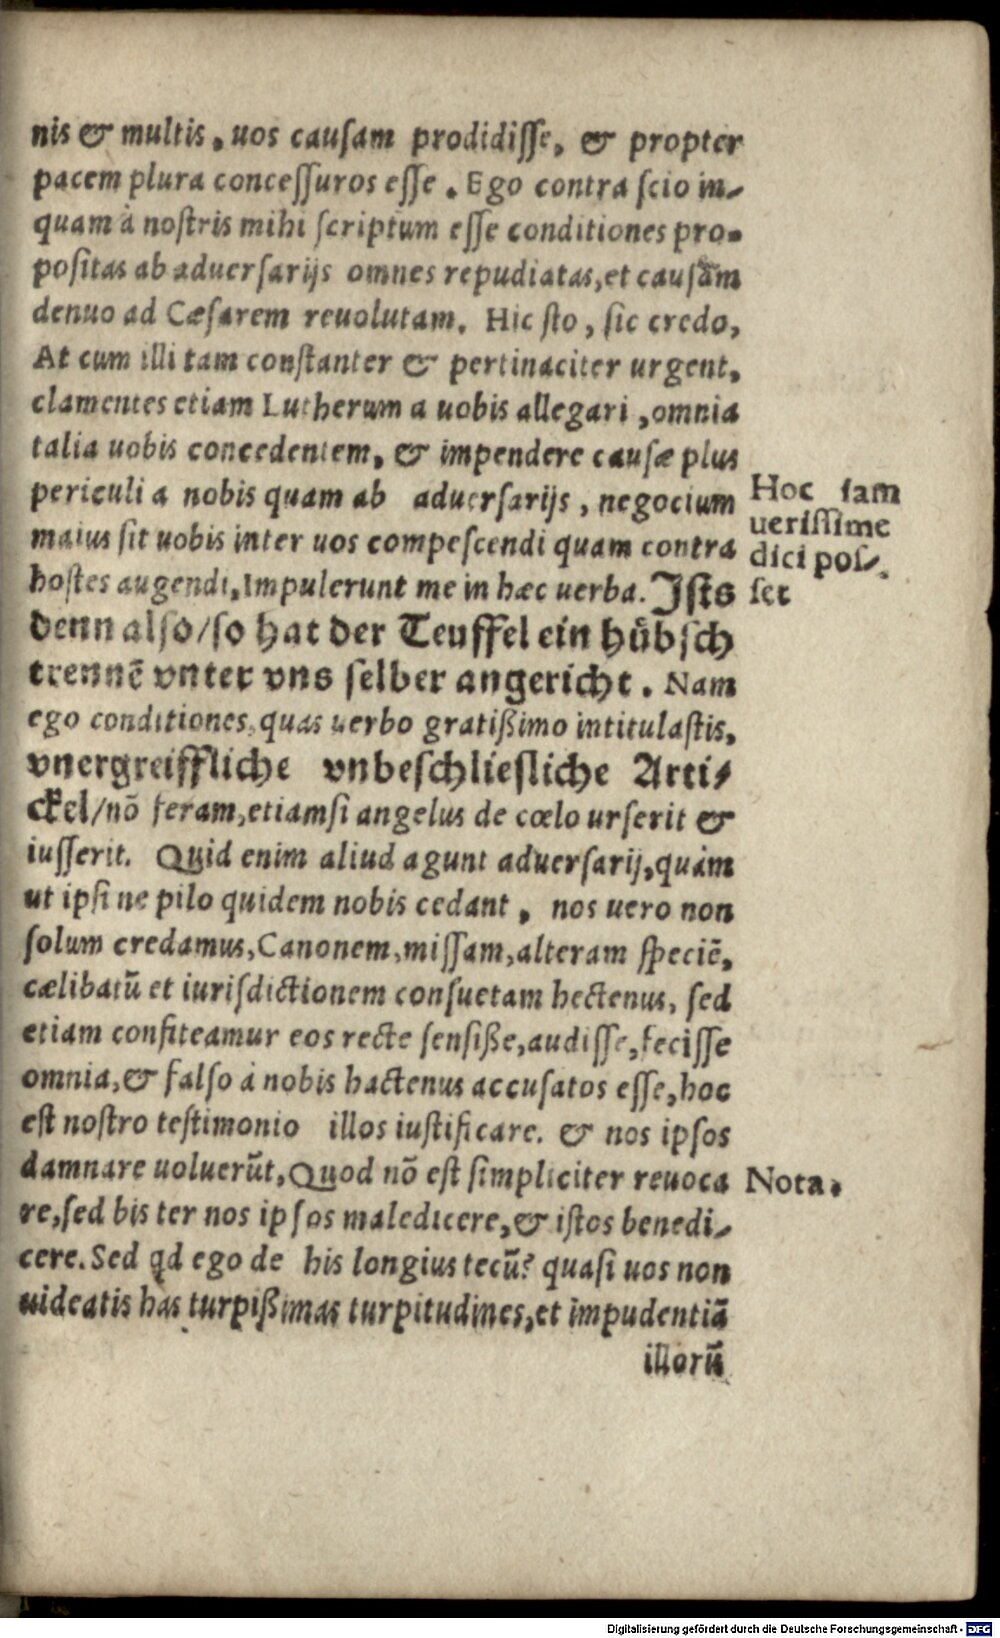 nis & multis, uos causam prodidisse, & propter
pacem plura concessuros esse. Ego contra scio in-
quam à nostris mihi scriptum esse conditiones pro-
positas ab aduersarijs omnes repudiatas, et causam
denuo ad Cæsarem reuolutam. Hic sto, sic credo,
At cum illi tam constanter & pertinaciter urgent,
clamentes etiam Lutherum a uobis allegari, omnia
talia uobis concedentem, & impendere causæ plus
periculi a nobis quam ab aduersarijs, negocium
maius sit uobis inter uos compescendi quam contra
hostes augendi, Impulerunt me in hæc uerba. Ists
denn also/so hat der Teuffel ein hübsch
trennē vnter vns selber angericht. Nam
ego conditiones, quas uerbo gratißimo intitulastis,
vnergreiffliche vnbeschliesliche Arti-
ckel/nō feram, etiamsi angelus de cœlo urserit &
iusserit. Quid enim aliud agunt aduersarij, quàm
ut ipsi ne pilo quidem nobis cedant, nos uero non
solum credamus, Canonem, missam, alteram speciē,
cælibatū et iurisdictionem consuetam hectenus, sed
etiam confiteamur eos recte sensiße, audisse, fecisse
omnia, & falso à nobis hactenus accusatos esse, hoc
est nostro testimonio illos iustificare. & nos ipsos
damnare uoluerūt, Quod nō est simpliciter reuoca
re, sed bis ter nos ipsos maledicere, & istos benedi-
cere. Sed qd ego de his longius tecū? quasi uos non
uideatis has turpißimas turpitudines, et impudentiā
illorū
Hoc iam
uerissime
dici pos-
set
Nota.
Digitalisierung gefördert durch die Deutsche Forschungsgemeinschaft - DFG